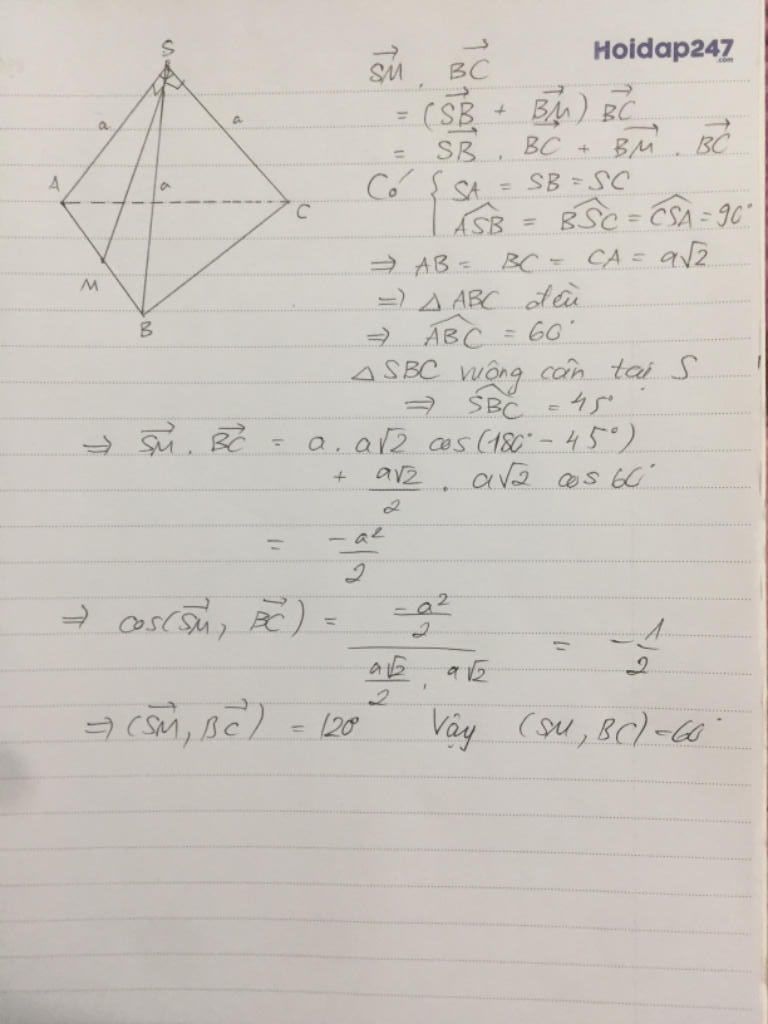 Hoidap247
.com
S
a
a
A
a
C
M
B
$\overrightarrow{SM} . \overrightarrow{BC}$
$= (\overrightarrow{SB} + \overrightarrow{BM}) \overrightarrow{BC}$
$= \overrightarrow{SB} . \overrightarrow{BC} + \overrightarrow{BM} . \overrightarrow{BC}$
Có { SA = SB = SC
$\widehat{ASB} = \widehat{BSC} = \widehat{CSA} = 90°$
⇒ AB = BC = CA = a√2
⇒ △ ABC đều
⇒ $\widehat{ABC}$ = 60°
△ SBC vuông cân tại S
⇒ $\widehat{SBC}$ = 45°
⇒ $\overrightarrow{SM} . \overrightarrow{BC}$ = a . a√2 cos(180° - 45°)
+ $\frac{a\sqrt{2}}{2}$ . a√2 cos 60°
= $\frac{-a^2}{2}$
⇒ cos($\overrightarrow{SM}$, $\overrightarrow{BC}$) = $\frac{\frac{-a^2}{2}}{\frac{a\sqrt{2}}{2} . a\sqrt{2}}$ = $-\frac{1}{2}$
⇒ ($\overrightarrow{SM}$, $\overrightarrow{BC}$) = 120° Vậy (SM, BC) = 60°